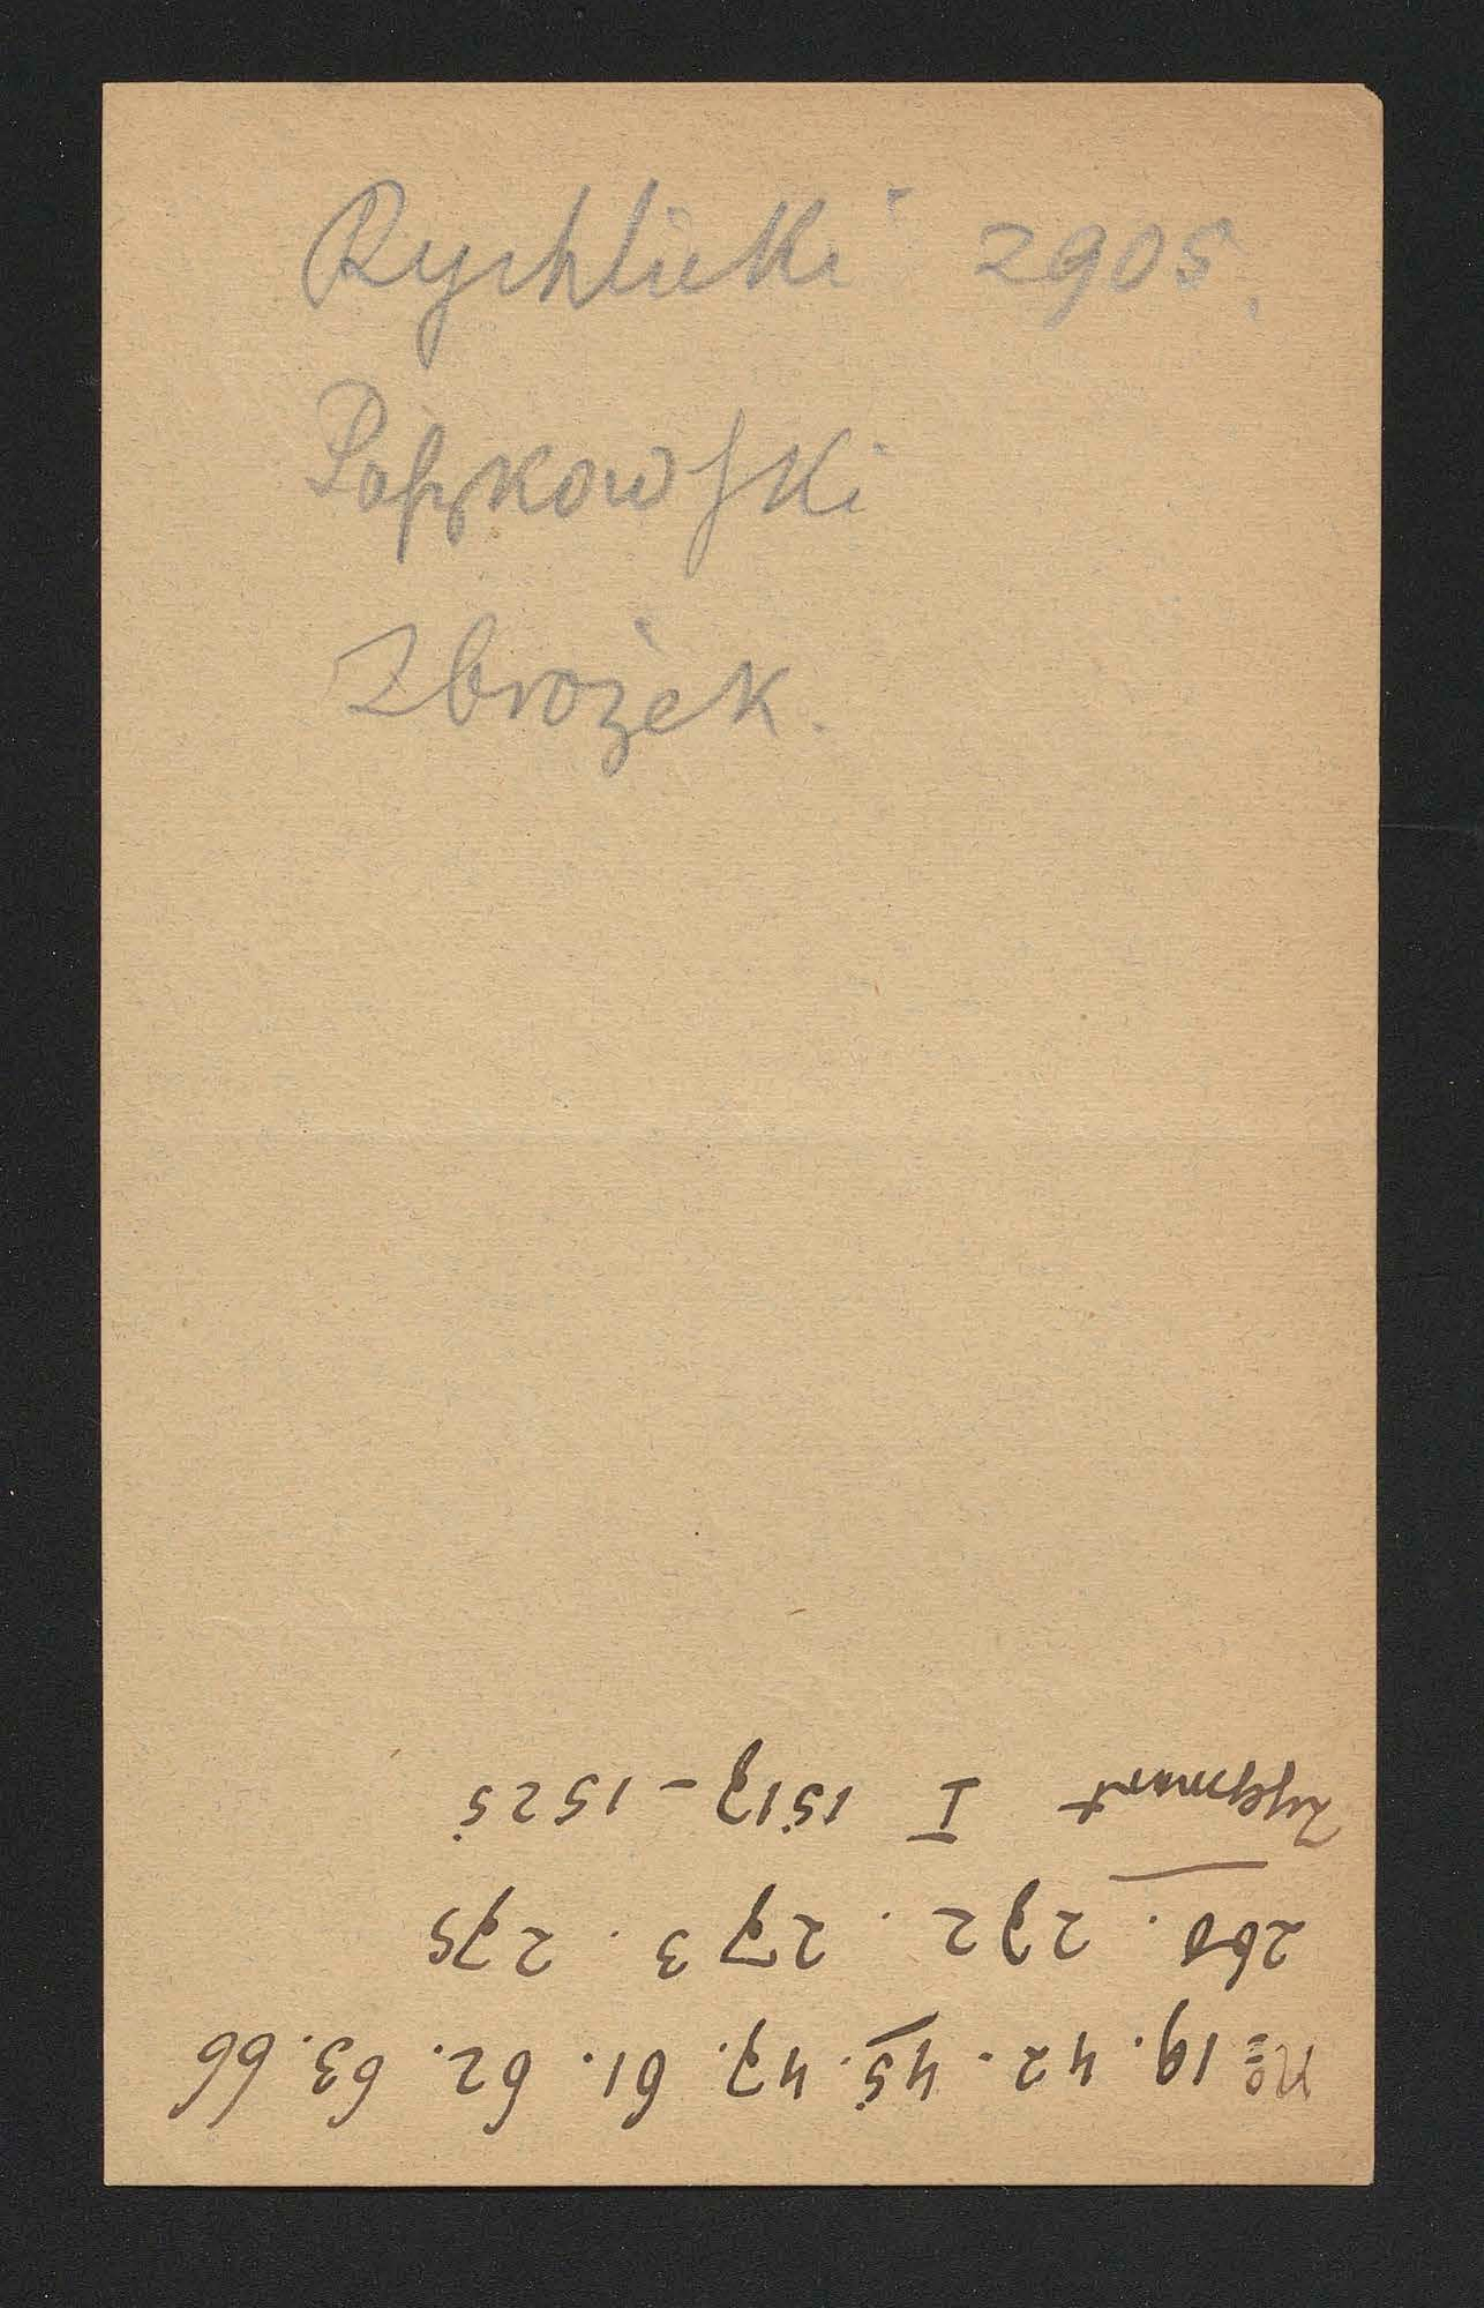 Rychlicki 2905.
Paszkowski
Zbrożek.
No 19. 42. 45. 47. 61. 62. 63. 66
260. 272. 273. 275
Zygmunt I 1517-1525